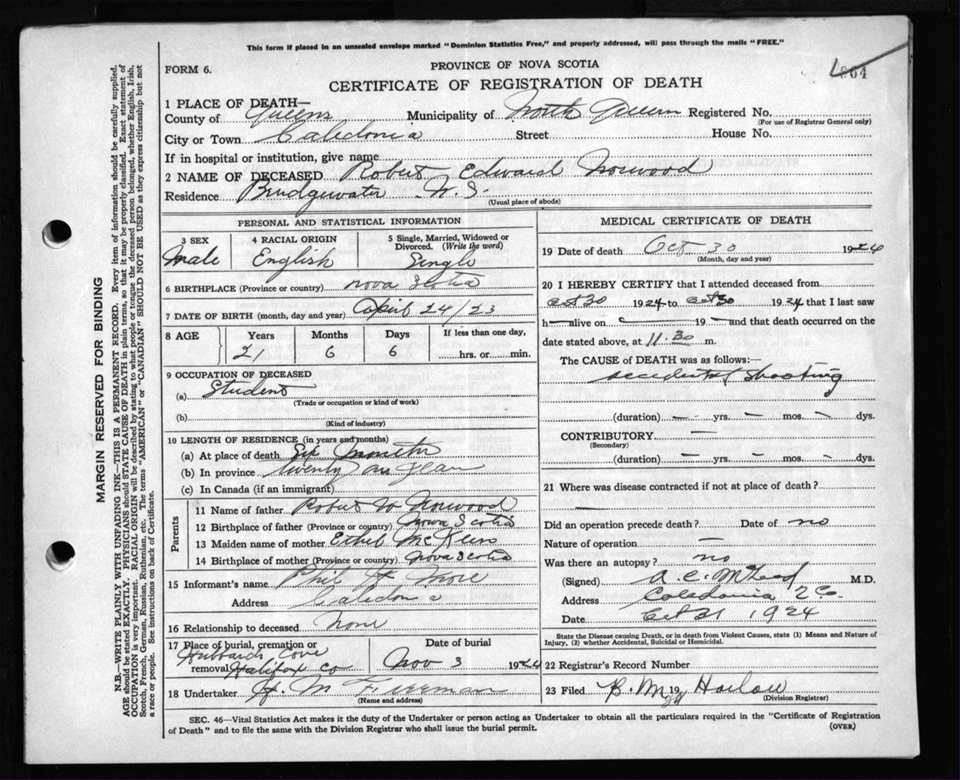 This form if placed in an unsealed envelope marked "Dominion Statistics Free," and properly addressed, will pass through the mails "FREE."
FORM 6.
PROVINCE OF NOVA SCOTIA
864
CERTIFICATE OF REGISTRATION OF DEATH
1 PLACE OF DEATH—
County of Queens Municipality of North Queens Registered No.
(For use of Registrar General only)
City or Town Caledonia Street House No.
If in hospital or institution, give name
2 NAME OF DECEASED Robert Edward Norwood
Residence Bridgewater N.S.
(Usual place of abode)
PERSONAL AND STATISTICAL INFORMATION
3 SEX
Male
4 RACIAL ORIGIN
English
5 Single, Married, Widowed or Divorced. (Write the word)
Single
6 BIRTHPLACE (Province or country) Nova Scotia
7 DATE OF BIRTH (month, day and year) April 24/23
8 AGE Years Months Days If less than one day,
21 6 6 hrs. or min.
9 OCCUPATION OF DECEASED
(a) Student
(Trade or occupation or kind of work)
(b)
(Kind of industry)
10 LENGTH OF RESIDENCE (in years and months)
(a) At place of death Six months
(b) In province twenty one years
(c) In Canada (if an immigrant)
Parents
11 Name of father Robert W Norwood
12 Birthplace of father (Province or country) Nova Scotia
13 Maiden name of mother Ethel McKeen
14 Birthplace of mother (Province or country) Nova Scotia
15 Informant's name Phil H. More
Address Caledonia
16 Relationship to deceased none
17 Place of burial, cremation or removal Date of burial
Hubbards Cove
Halifax Co Nov 3 1924
18 Undertaker H. M Freeman
(Name and address)
MEDICAL CERTIFICATE OF DEATH
19 Date of death Oct 30 1924
(Month, day and year)
20 I HEREBY CERTIFY that I attended deceased from
Oct 30 1924 to Oct 30 1924 that I last saw
h— alive on — 19— and that death occurred on the
date stated above, at 11.30 m.
The CAUSE of DEATH was as follows:—
accidental shooting
(duration) — yrs. — mos. — dys.
CONTRIBUTORY —
(Secondary)
(duration) — yrs. — mos. — dys.
21 Where was disease contracted if not at place of death?
—
Did an operation precede death? Date of no
Nature of operation —
Was there an autopsy? no
(Signed) A. C. McLeod M.D.
Address Caledonia Q Co.
Date Oct 31 1924
State the Disease causing Death, or in death from Violent Causes, state (1) Means and Nature of Injury, (2) whether Accidental, Suicidal or Homicidal.
22 Registrar's Record Number
23 Filed 19 24 B. M. Harlow
(Division Registrar)
SEC. 46—Vital Statistics Act makes it the duty of the Undertaker or person acting as Undertaker to obtain all the particulars required in the "Certificate of Registration
of Death" and to file the same with the Division Registrar who shall issue the burial permit.
(OVER)
MARGIN RESERVED FOR BINDING
N.B.—WRITE PLAINLY, WITH UNFADING INK—THIS IS A PERMANENT RECORD. Every item of information should be carefully supplied.
AGE should be stated EXACTLY. PHYSICIANS should STATE CAUSE OF DEATH in plain terms, so that it may be properly classified. Exact statement of
OCCUPATION is very important. RACIAL ORIGIN will be described by stating to what people or tongue the deceased person belonged, whether English, Irish,
Scotch, French, German, Russian, Ruthenian, etc. The terms "AMERICAN" or "CANADIAN" SHOULD NOT BE USED as they express citizenship but not
a race or people. See instructions on back of Certificate.